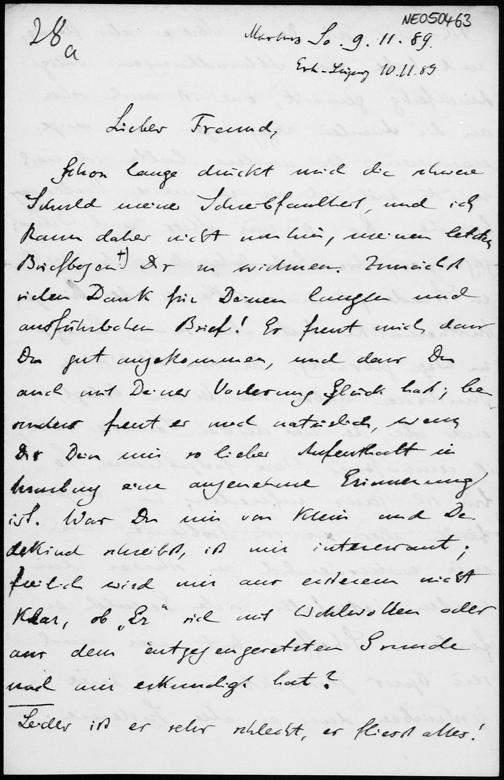 NE050463
28a
Marburg So. 9.11.89.
Erh. 10.11.89
Lieber Freund,
Schon lange drückt mich die schwere
Schuld meiner Schreibfaulheit, und ich
kann daher nicht umhin, meinen letzten
Briefbogen +) Dir zu widmen. Zunächst
vielen Dank für Deinen langen und
ausführlichen Brief! Es freut mich dass
Du gut angekommen, und dass Du
auch mit Deiner Vorlesung Glück hast; be-
sonders freut es mich natürlich, wenn
Dir Dein mir so lieber Aufenthalt in
Marburg eine angenehme Erinnerung
ist. Was Du mir von Klein und De-
dekind schreibst, ist mir interessant;
freilich wird mir aus ersterem nicht
klar, ob „Er“ sich mit Wohlwollen oder
aus dem entgegengesetzten Grunde
nach mir erkundigt hat?
Leider ist er sehr schlecht, es fliesst alles!